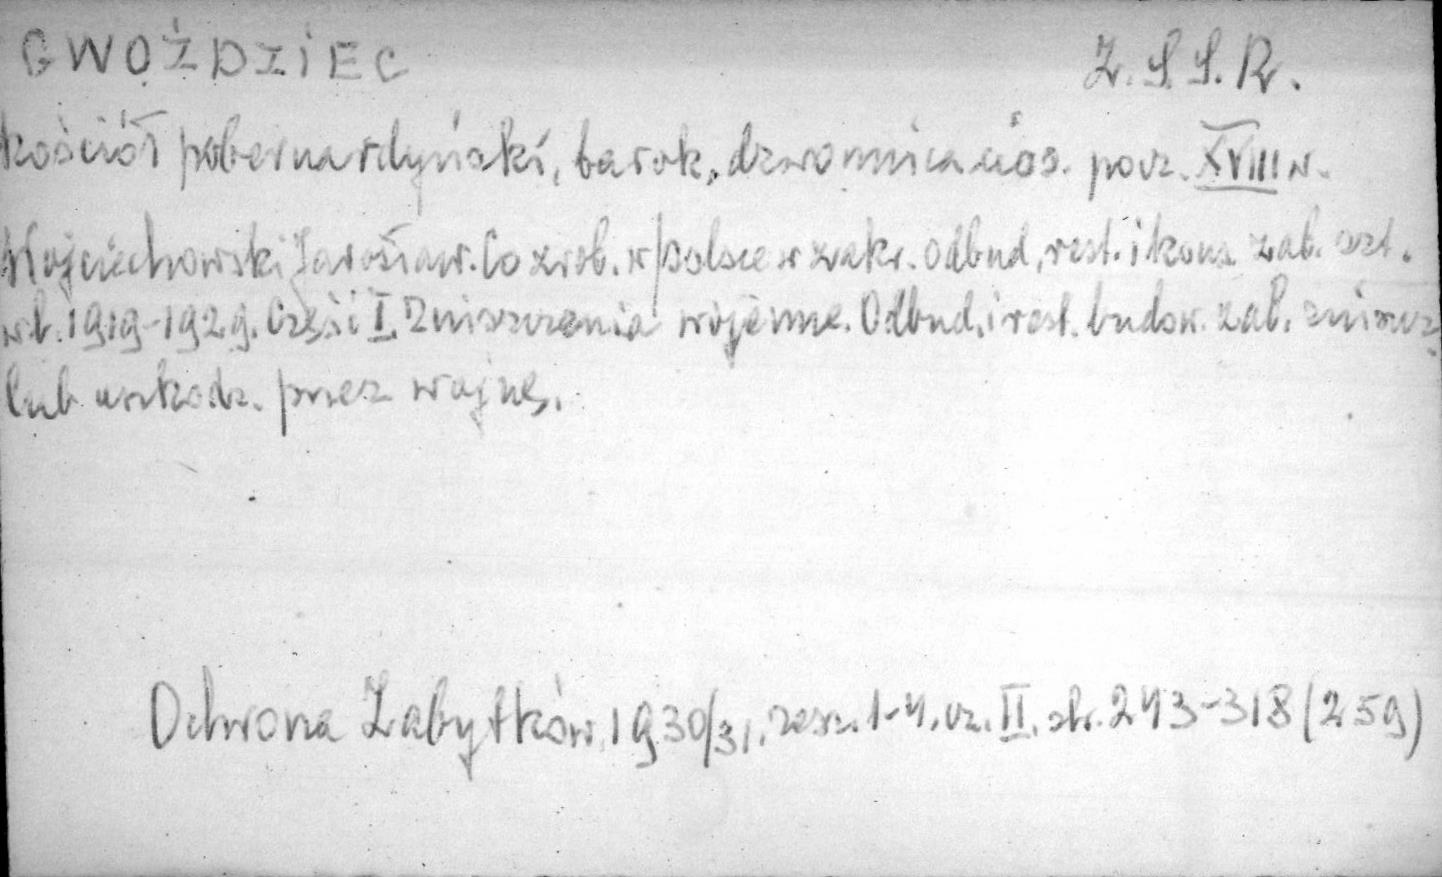 GWOŹDZIEC Z.S.S.R.
kościół pobernardyński, barok, dzwonnica cios. pocz. XVIII w.
Wojciechowski Jarosław. Co zrob. w Polsce w zakr. odbud, rest. i kons. zab. szt.
w l. 1919-1929. Część I. Zniszczenia wojenne. Odbud. i rest. budow. zab. zniszcz.
lub uszkodz. przez wojnę.
Ochrona Zabytków, 1930/31, zesz. 1-4. cz. II, str. 243-318 (259)